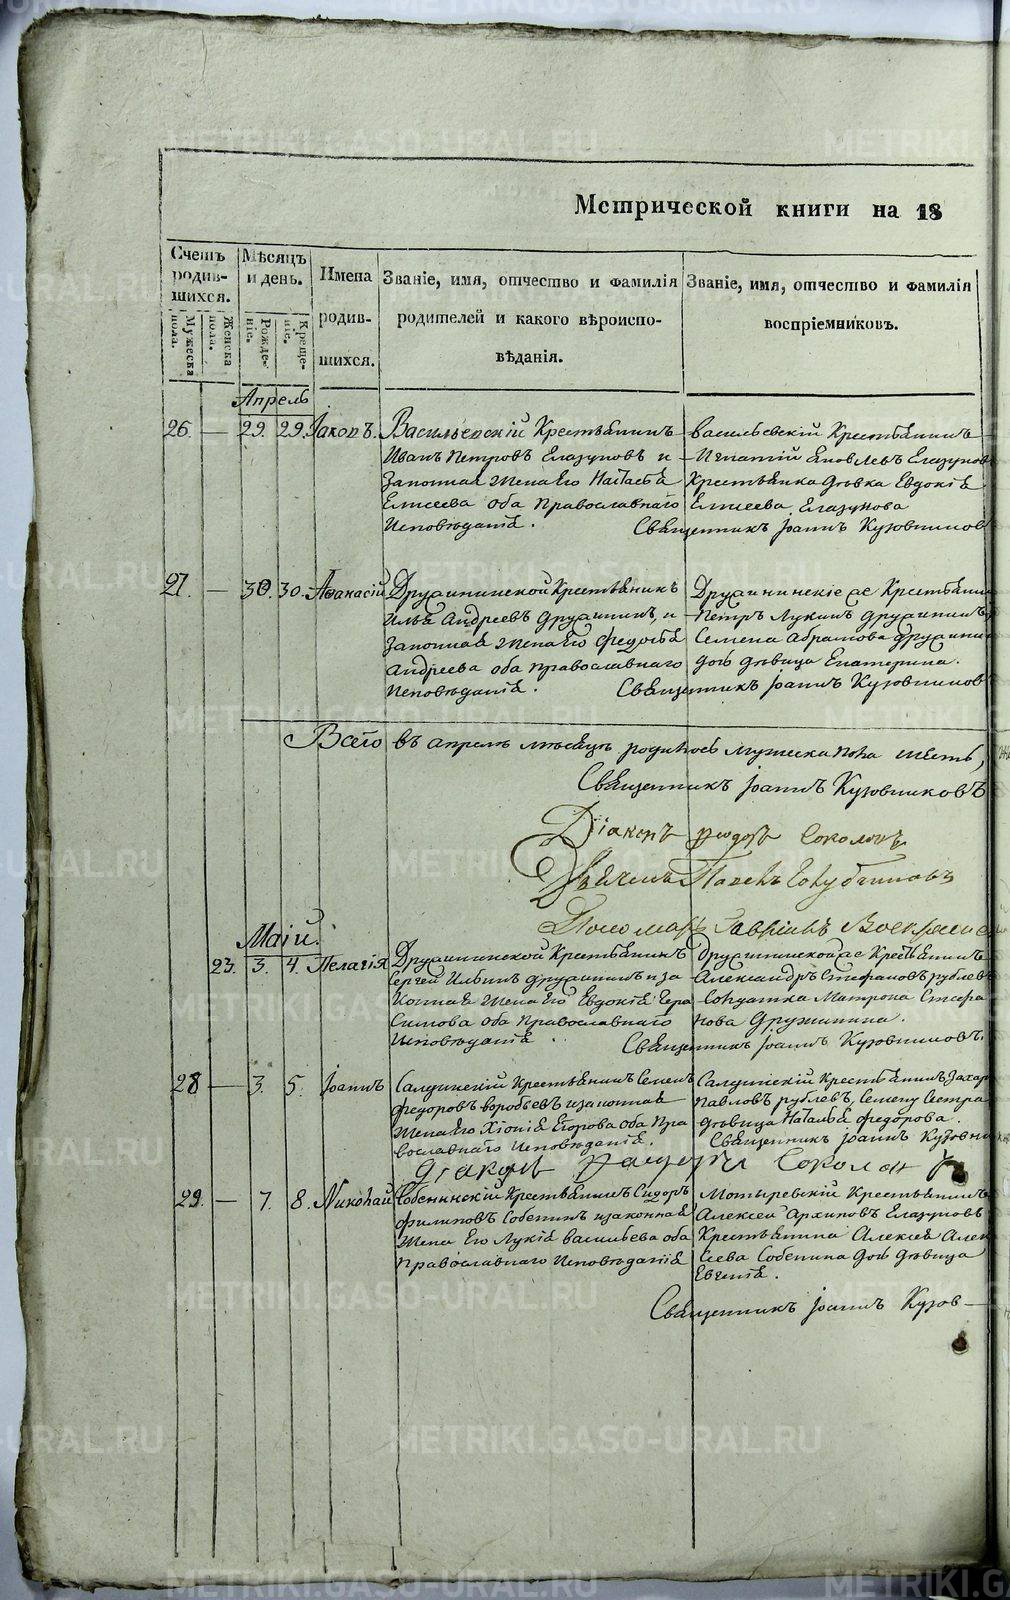 Метрической книги на 18
Счетъ родившихся.
Мужеска пола.
Женска пола.
Мѣсяцъ и день.
Рожденіе.
Крещеніе.
Имена родившихся.
Званіе, имя, отчество и фамилія родителей и какого вѣроисповѣданія.
Званіе, имя, отчество и фамилія воспріемниковъ.
Апрель
26. — 29. 29. Іаковъ.
Васильевскій Крестьянинъ
Иванъ Петровъ Глазуновъ и
Законная Жена Его
Елисеева оба Православнаго
Исповѣданія.
Васильевскій Крестьянинъ
Игнатій Яковлевъ Глазунов
Крестьянка Дѣвка Евдокія
Елисеева Глазунова
Священникъ Іоаннъ Кузовников
27. — 30. 30. Афанасій
Дружининской Крестьянинъ
Илья Андреевъ Дружининъ, и
Законная Жена Его
Андреева оба Православнаго
Исповѣданія.
Крестьян
Петръ Лукин Дружининъ
Семена Абрамова Дружини
дочь дѣвица Екатерина.
Священникъ Іоаннъ Кузовников
Всего въ апреле мѣсяце родилось мужеска пола шесть,
Священникъ Іоаннъ Кузовниковъ
Діаконъ Федоръ Соколовъ
Павелъ
Пономарь Гавріилъ Воскресенс
Маій.
23. 3. 4. Пелагія
Дружининской Крестьянинъ
Сергей Ильинъ Дружининъ и за
конная Жена Его Евдокія Гера
симова оба Православнаго
Исповѣданія
Крестьянинъ
Александръ Стефановъ Рублевъ
Солдатка Матрона Стефа
нова Дружинина.
Священникъ Іоаннъ Кузовниковъ.
28 — 3. 5. Іоаннъ
Салдинскій Крестьянинъ Семенъ
Федоровъ Воробьевъ и законная
Жена Его Хіонія Егорова оба Пра
вославнаго Исповѣданія.
Салдинскій Крестьянинъ Захар
Павловъ Рублевъ, Семену Сестра
дѣвица Наталья Федорова.
Священникъ Іоаннъ Кузовни
Діаконъ Соколов
29. — 7. 8. Николай
Собенинскій Крестьянинъ Сидоръ
Филиповъ Собенинъ и законная
Жена Его Лукія Васильева оба
Православнаго Исповѣданія
Мотыревскій Крестьянинъ
Алексей Архиповъ Глазуновъ
Крестьянина Алексія Алек
сеева Собенина дочь дѣвица
Евгенія.
Священникъ Іоаннъ Кузов—
METRIKI.GASO-URAL.RU